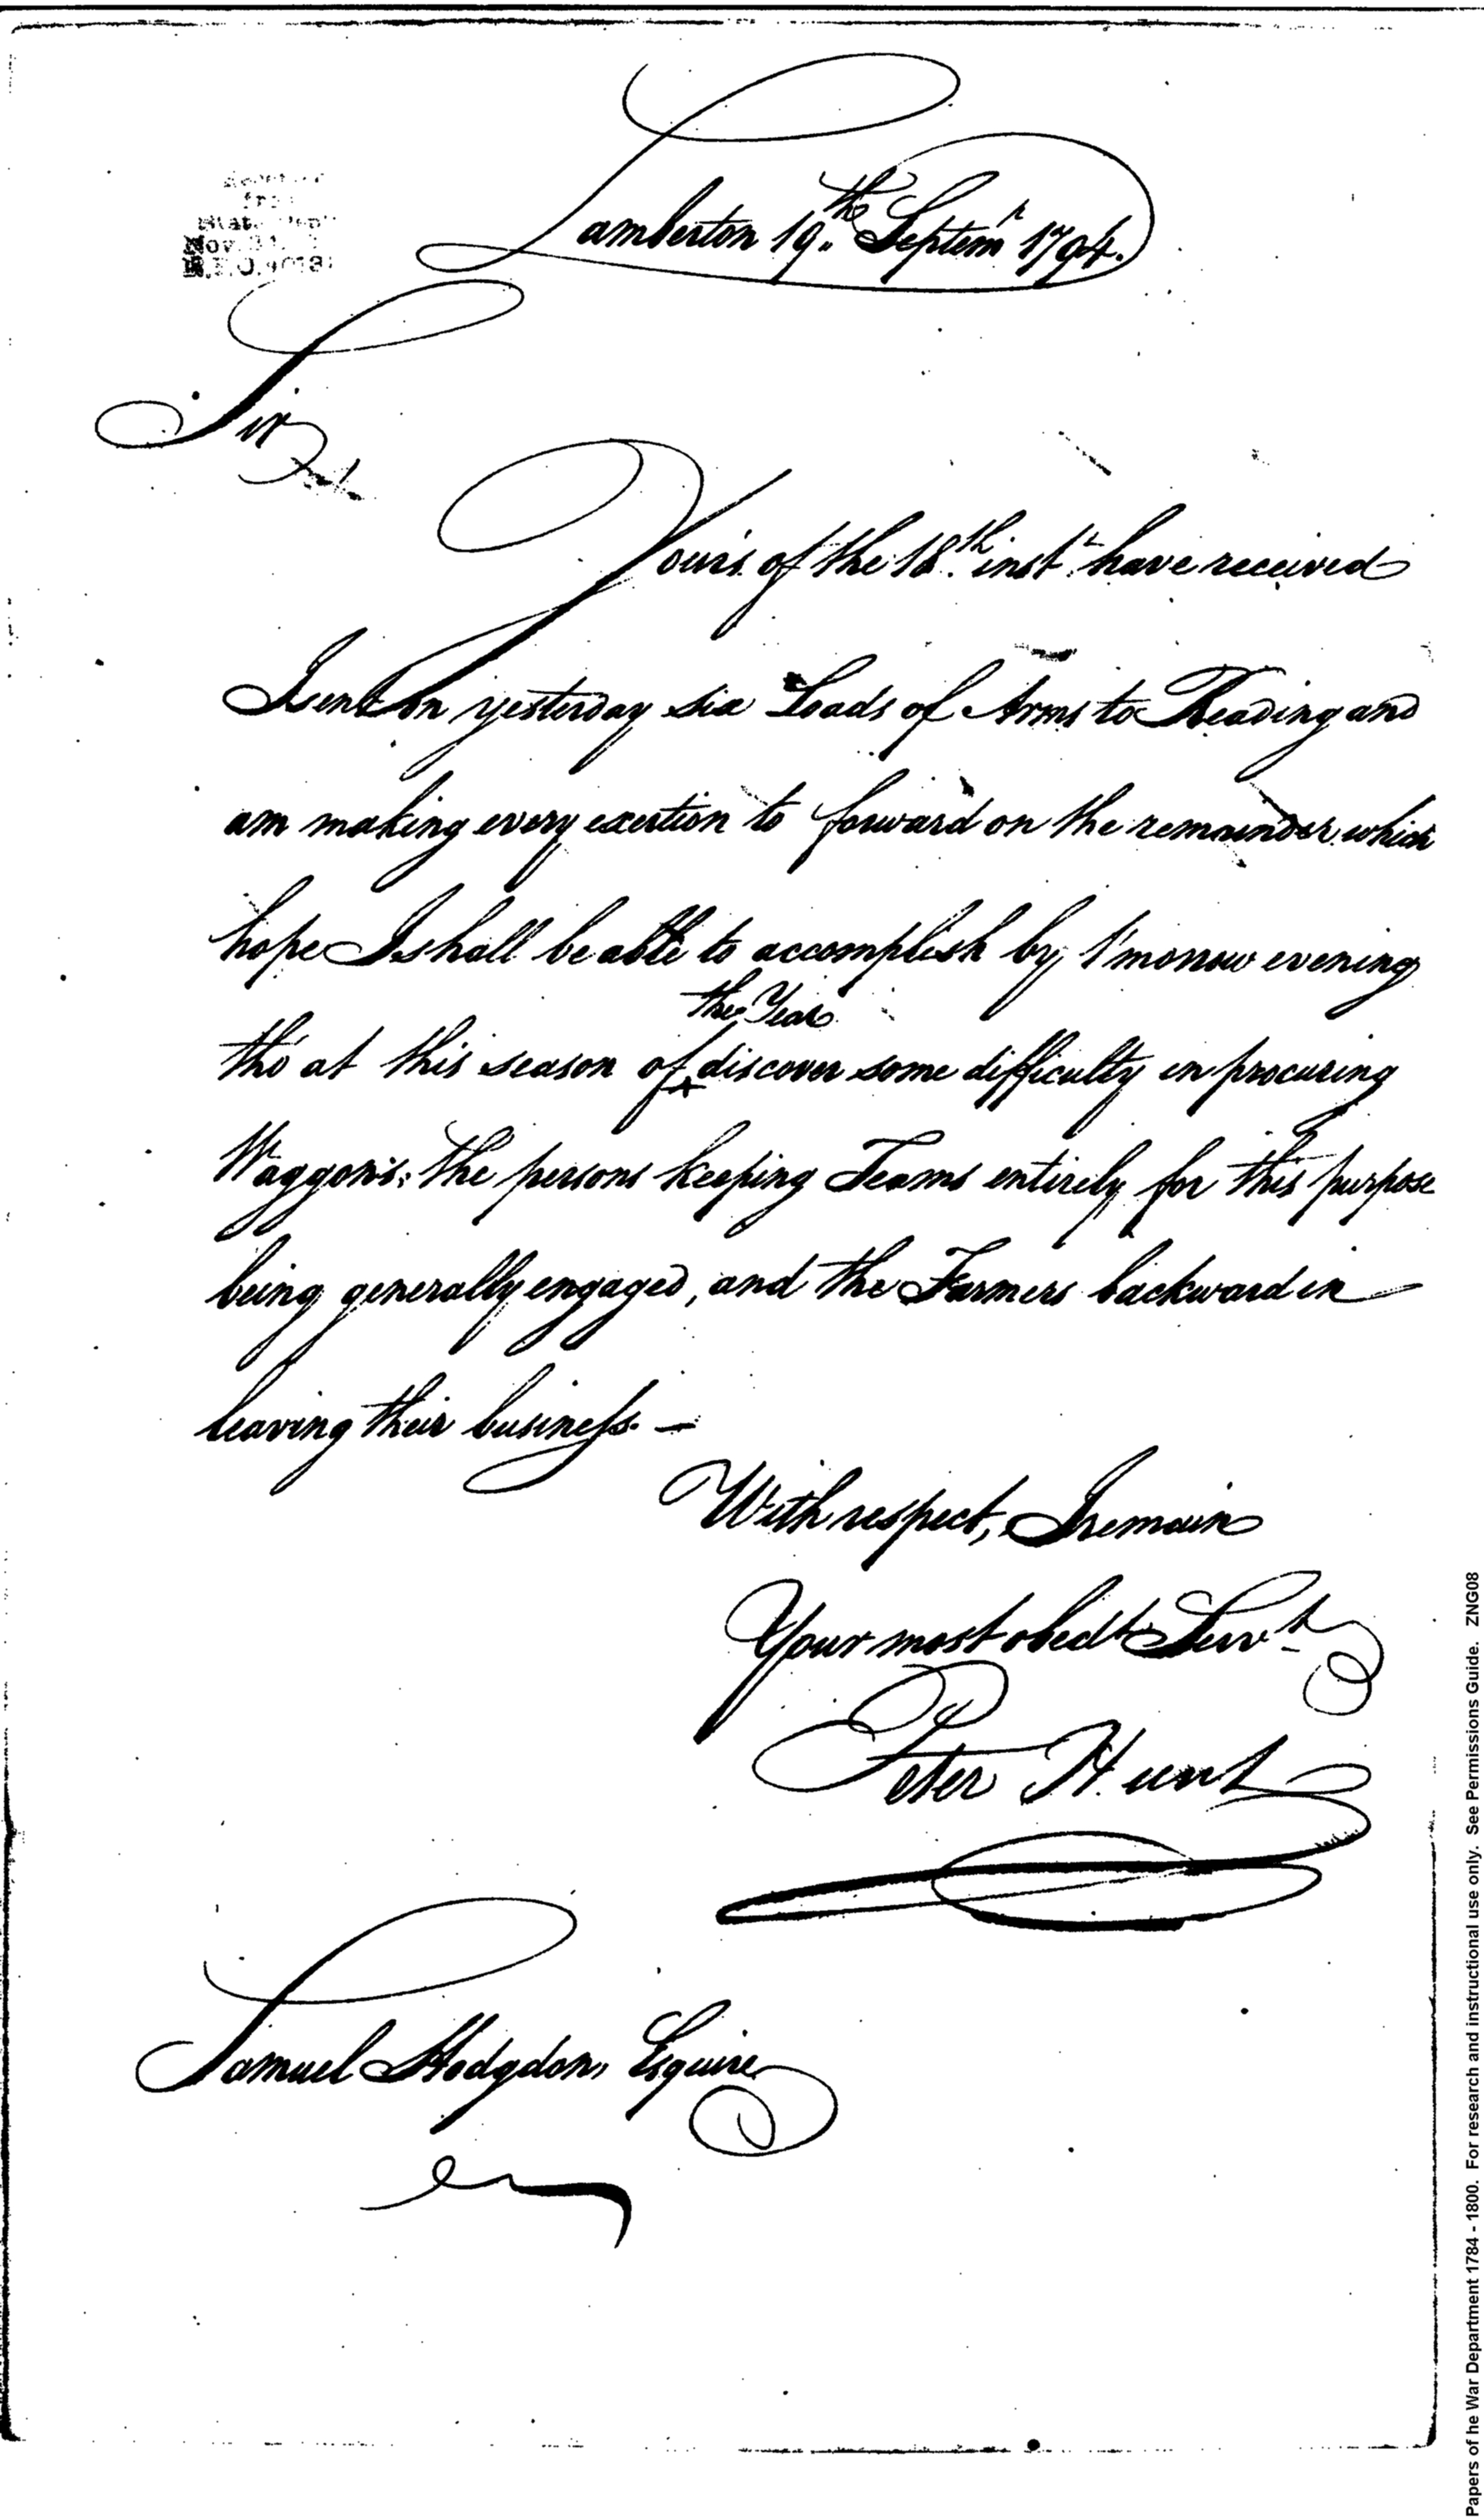 Lamberton 19th Septemr 1794.
Sir
Yours of the 18th inst. have received
I sent on yesterday six Loads of Arms to Reading and
am making every exertion to forward on the remainder which
hope I shall be able to accomplish by t'morrow evening
the Year
tho' at this season of discover some difficulty in procuring
Waggons; the persons keeping Teams entirely for this purpose
being generally engaged, and the Farmers backward in
leaving their business. —
With respect, I remain
Your most obedt. Servt.
Peter Hunt
Samuel Hodgdon, Esquire
Papers of he War Department 1784 - 1800. For research and instructional use only. See Permissions Guide. ZNG08